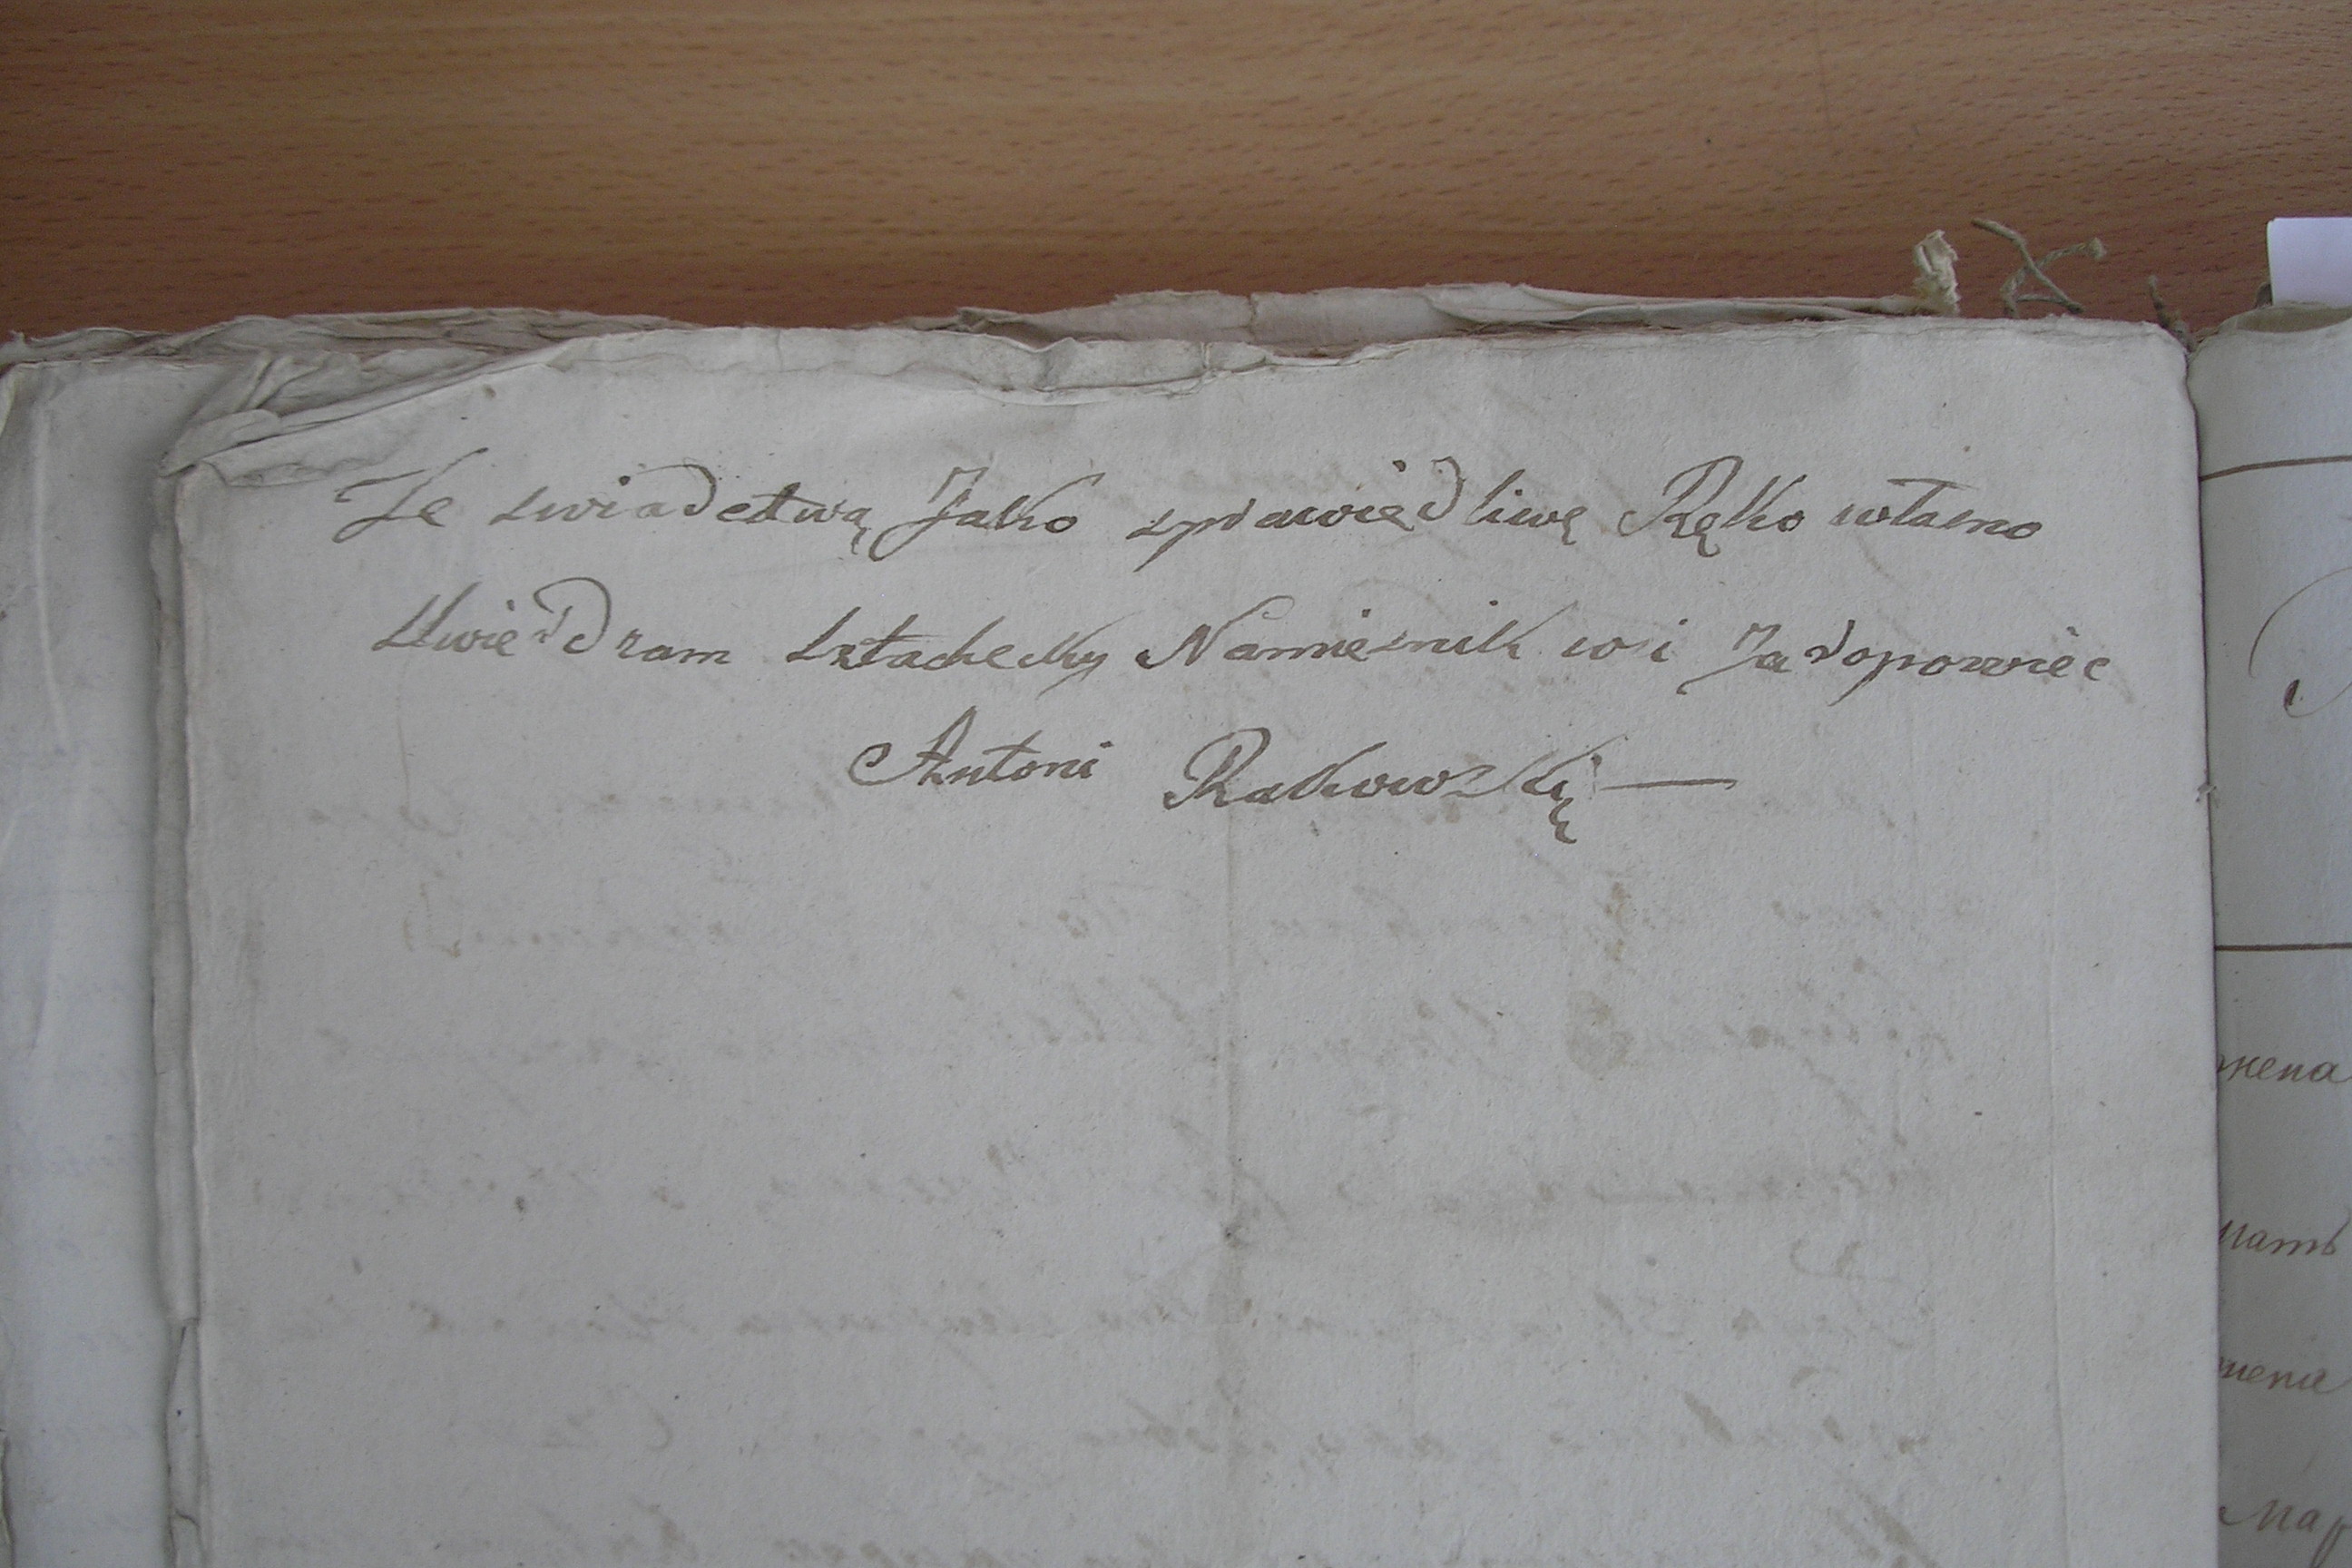 Ze swiadestwą Jako sprawiedliwę Rękо własno
stwierdzam szlachecky Namiesnik wsi Jadopowiec
Antoni Rakowskię —
жена
мать
жена
Мар